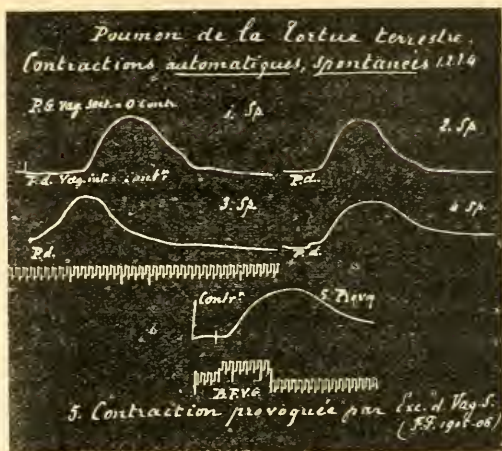 Poumon de la Tortue terrestre.
Contractions automatiques, spontanées 1.2.3.4
P.G. Vag. = 0 contr.
1. Sp.
2. Sp.
P.d. Vag. int. =
P.d.
3. Sp.
4. Sp.
P.d.
P.d.
Contr.ⁿ
5. Provq
B.F.V.G.
5. Contraction provoquée par Exc. d. Vag. S.
(F.F. 1905-06)